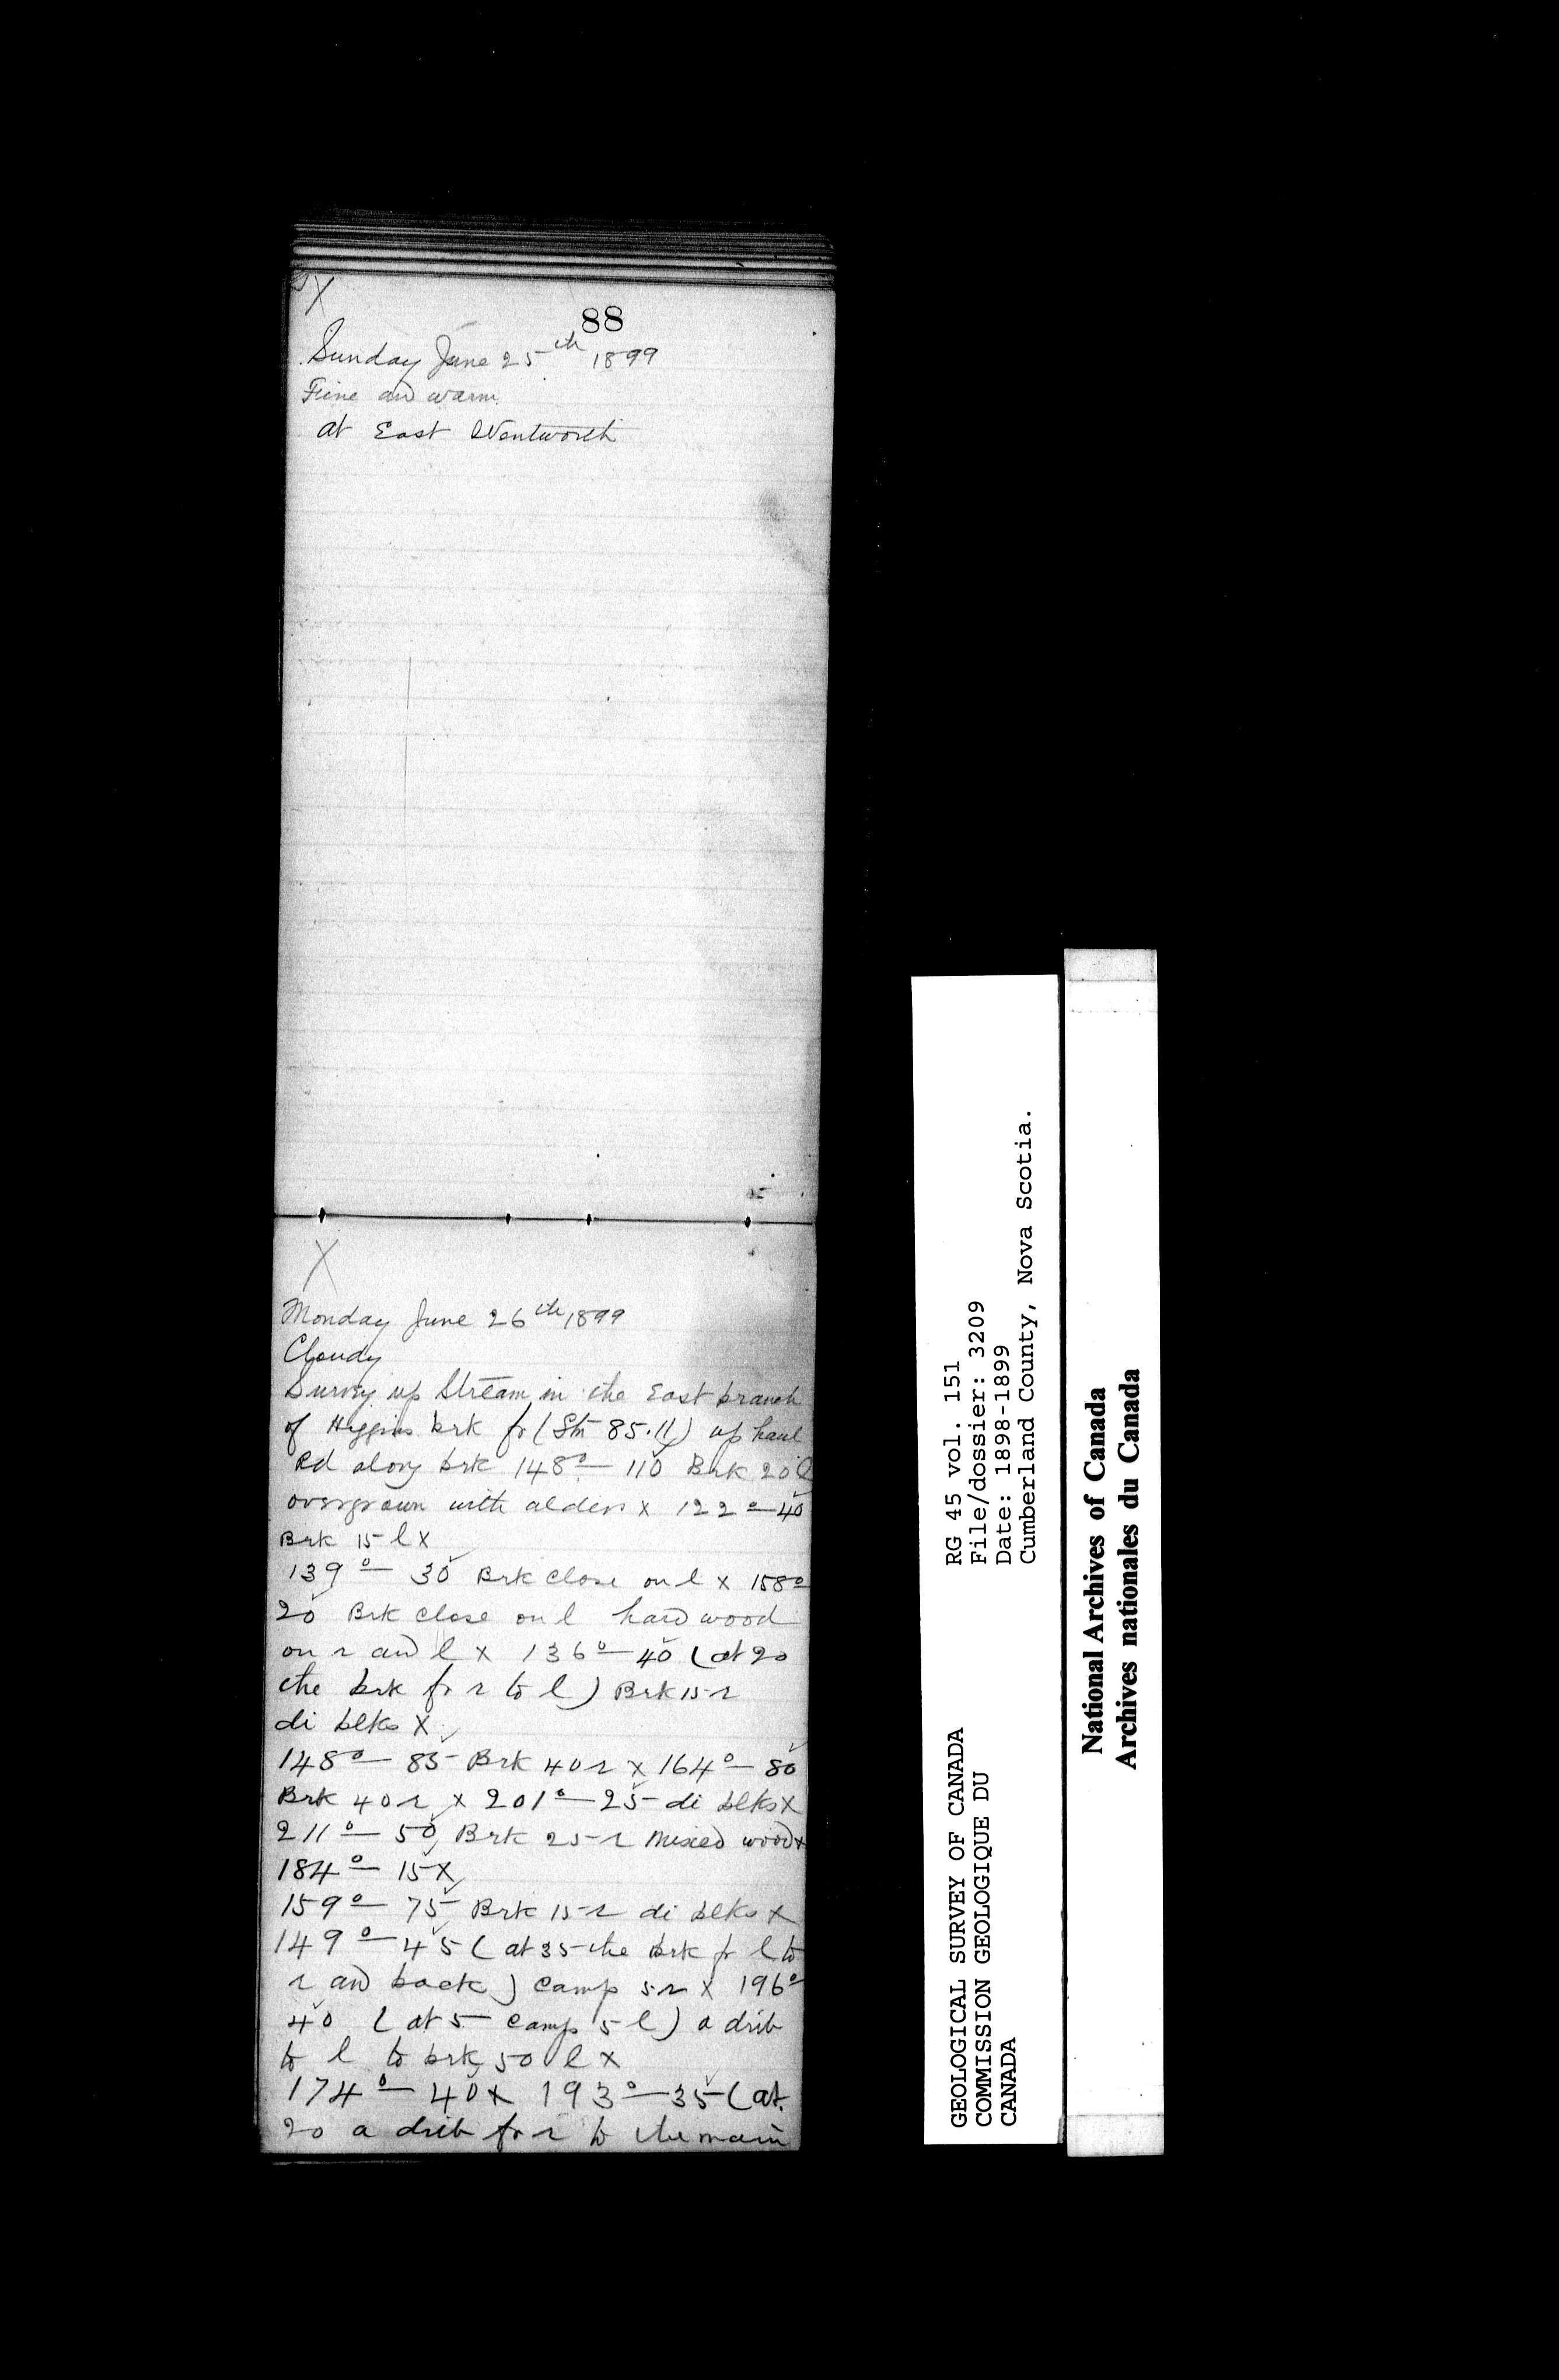 X
88
Sunday June 25th 1899
Fine and warm
at East Wentworth
X
Monday June 26th 1899
Cloudy
Survey up Stream in the East branch
of Higgins brk fr (Stn 85.11) up haul
Rd along brk 148° — 110 Brk 20 l
overgrown with alders x 122° — 40
Brk 15 l x
139° — 30 Brk close on l x 158°
20 Brk close on l hard wood
on r and l x 136° — 40 (at 20
the brk fr r to l) Brk 15 r
di blks x
148° — 85 Brk 40 r x 164° — 80
Brk 40 r x 201° — 25 di blks x
211° — 50 Brk 25 r mixed wood x
184° — 15 x
159° — 75 Brk 15 r di blks x
149° — 45 (at 35 the brk fr l to
r and back) Camp 5 r x 196°
40 (at 5 Camp 5 l) a drib
to l to brk 50 l x
174° — 40 x 193° — 35 (at
20 a drib fr r to the main
GEOLOGICAL SURVEY OF CANADA
COMMISSION GEOLOGIQUE DU
CANADA
RG 45 vol. 151
File/dossier: 3209
Date: 1898-1899
Cumberland County, Nova Scotia.
National Archives of Canada
Archives nationales du Canada